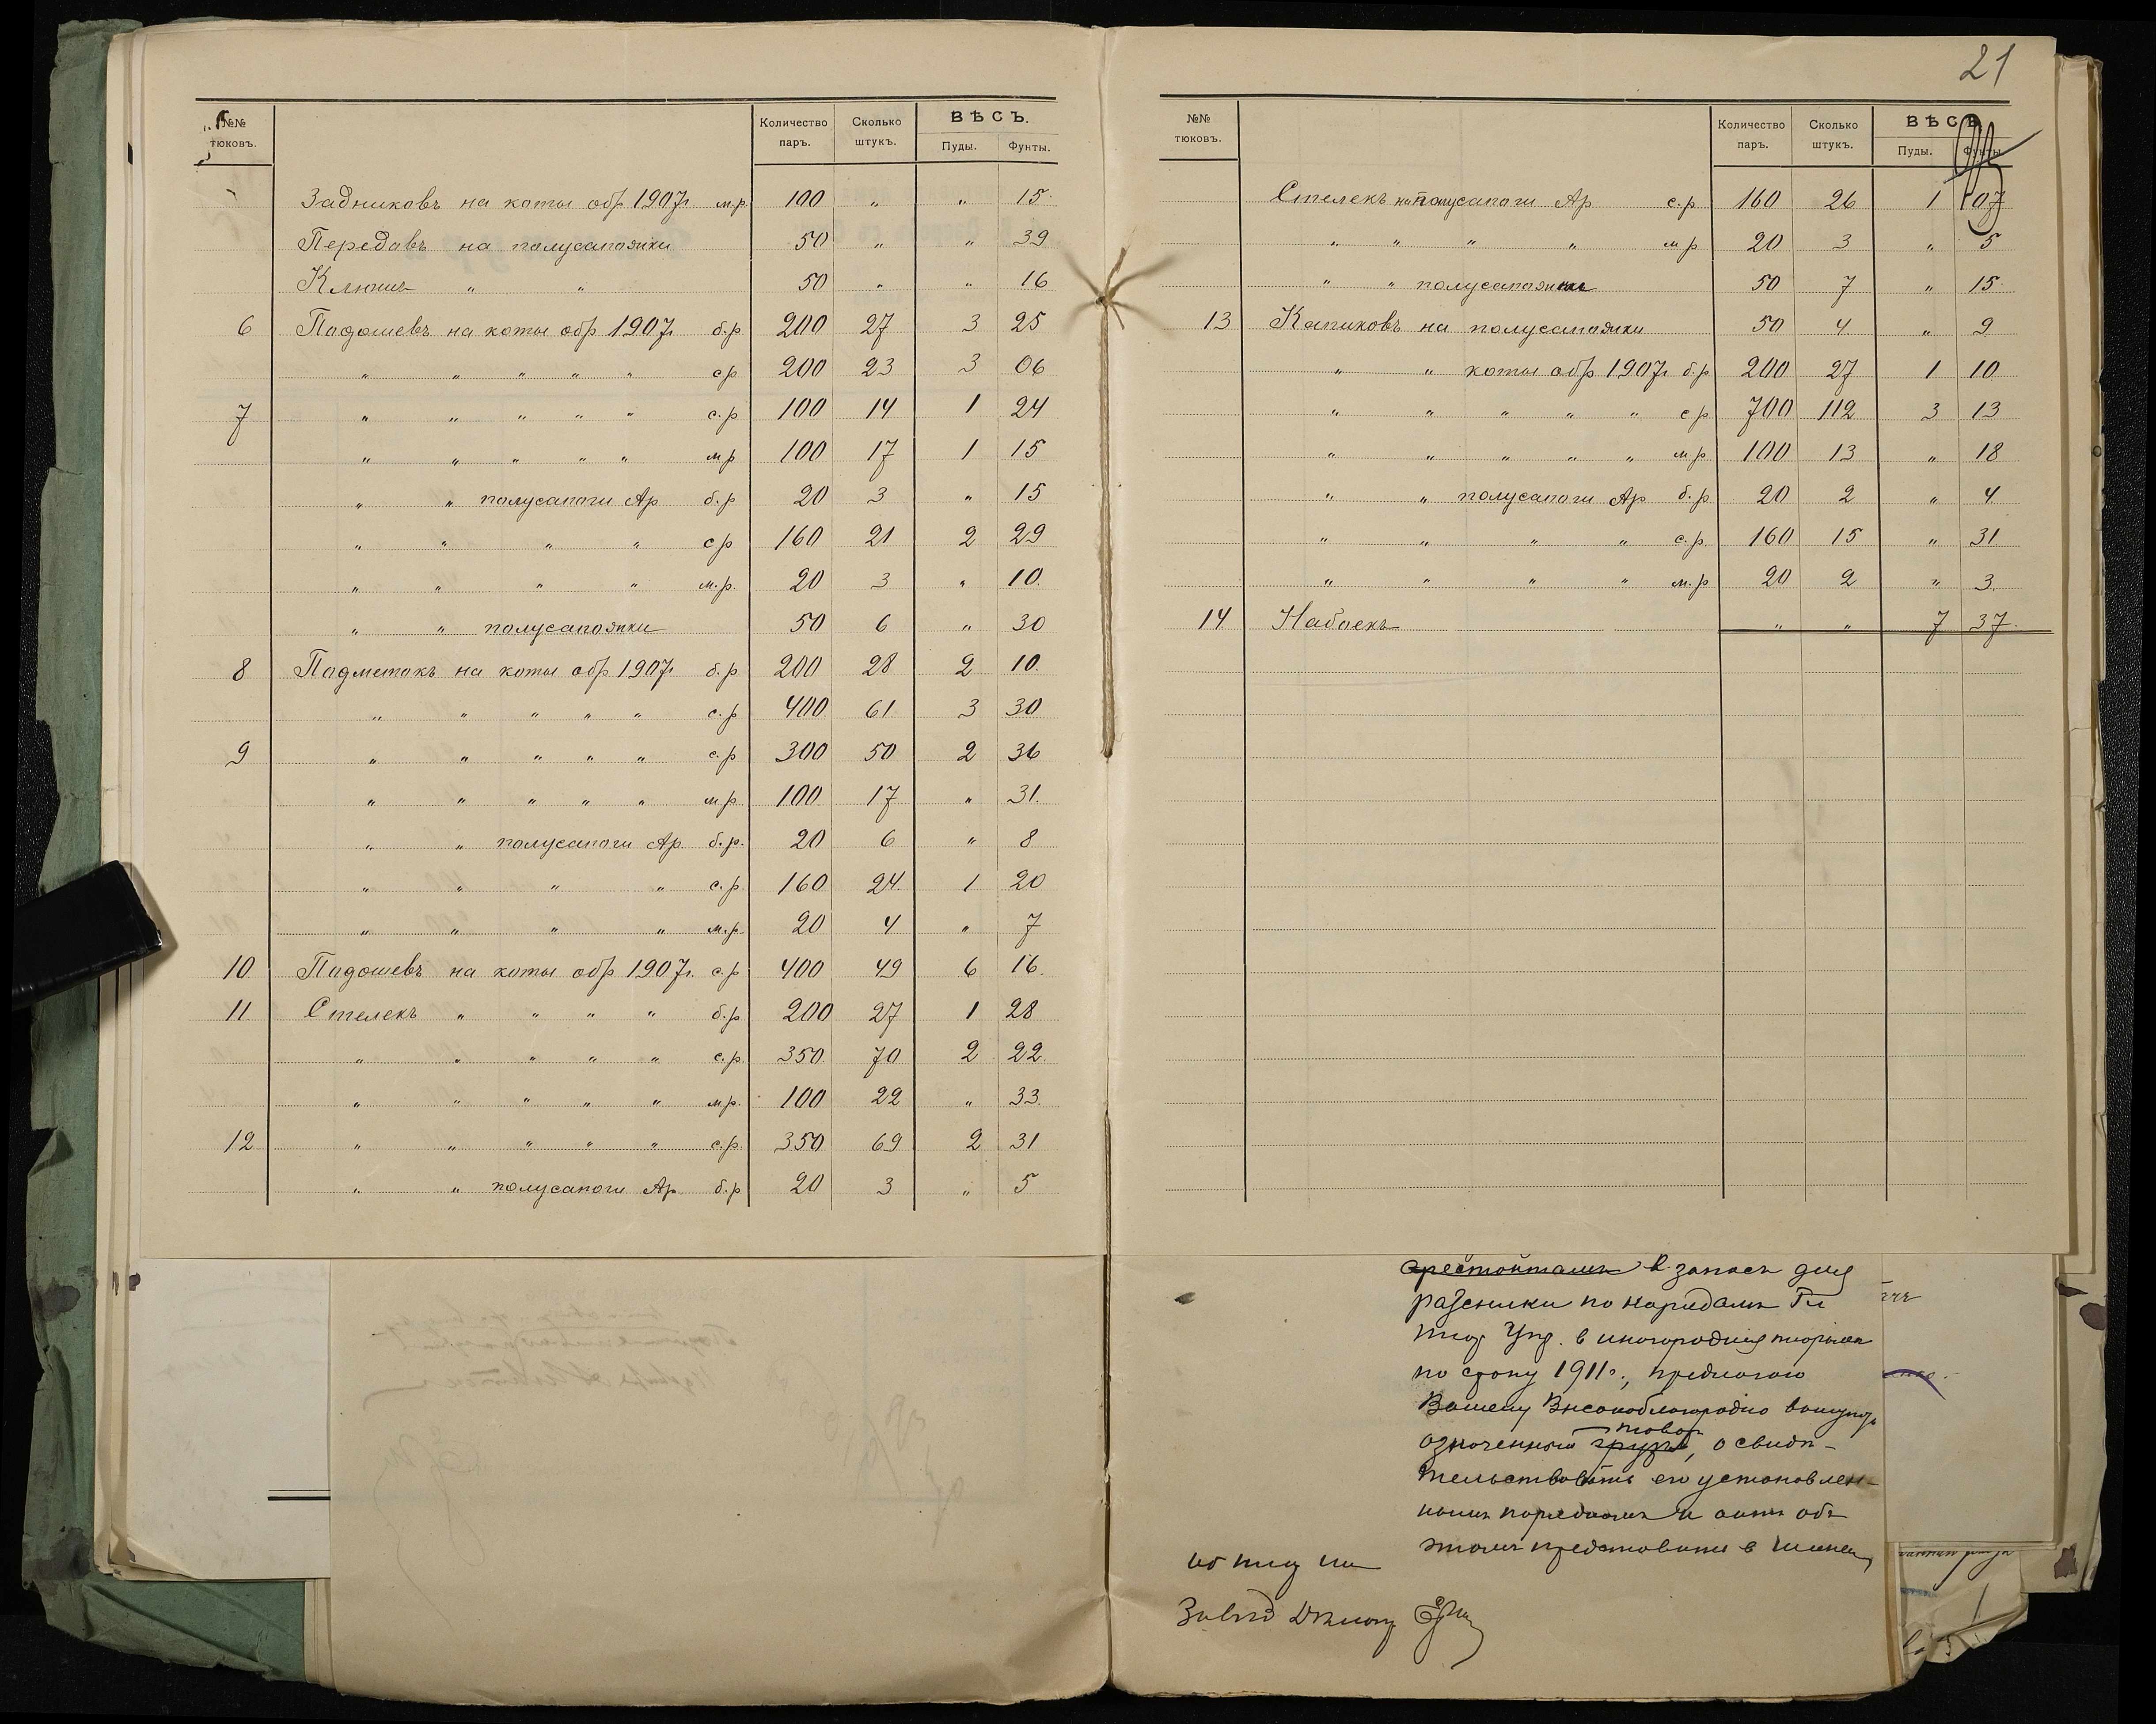 №№ тюковъ. Количество паръ. Сколько штукъ. ВѢСЪ. Пуды. Фунты.
Задниковъ на коты обр 1907г м.р 100 „ „ 15
Передовъ на полусапожки 50 „ „ 39
Клюшъ „ „ 50 „ „ 16
6 Подошевъ на коты обр 1907г б.р 200 27 3 25
„ „ „ „ „ с.р 200 23 3 06
7 „ „ „ „ „ с.р 100 14 1 24
„ „ „ „ „ м.р 100 17 1 15
„ „ полусапоги Ар б.р 20 3 „ 15
„ „ „ „ с.р 160 21 2 29
„ „ „ „ м.р. 20 3 „ 10.
„ „ полусапожки 50 6 „ 30
8 Подметокъ на коты обр 1907г б.р 200 28 2 10.
„ „ „ „ „ с.р 400 61 3 30
9 „ „ „ „ „ с.р 300 50 2 36
„ „ „ „ „ м.р 100 17 „ 31.
„ „ полусапоги Ар б.р. 20 6 „ 8
„ „ „ „ с.р. 160 24. 1 20
„ „ „ „ м.р. 20 4 „ 7
10. Подошевъ на коты обр 1907г. с.р 400 49 6 16.
11. Стелекъ „ „ „ „ б.р 200 27 1 28
„ „ „ „ „ с.р. 350 70 2 22.
„ „ „ „ „ м.р. 100 22 „ 33.
12 „ „ „ „ „ с.р. 350 69 2 31
„ „ полусапоги Ар б.р 20 3 „ 5
21
№№ тюковъ. Количество паръ. Сколько штукъ. ВѢСЪ. Пуды. Фунты.
Стелекъ на полусапоги Ар с.р 160 26 1 07
„ „ „ „ м.р 20 3 „ 5
„ „ полусапожки 50 7 „ 15.
13 Капиковъ на полусапожки 50 4 „ 9.
„ „ коты обр 1907г б.р 200 27 1 10
„ „ „ „ „ с.р 700 112 3 13
„ „ „ „ „ м.р 100 13 „ 18
„ „ полусапоги Ар б.р. 20 2 „ 4
„ „ „ „ с.р. 160 15 „ 31
„ „ „ „ м.р 20 2 „ 3.
14 Набоекъ „ „ 7 37.
арестонтамъ в запасъ для
разсылки по нарядамъ Гл
Тюр Упр. в иногородния тюрьмы
по сроку 1911г., предлагаю
Вашему Высокоблагородию
товар
означенный грузъ, освидѣ-
тельствовать его установлен-
нымъ порядкомъ и актъ объ
этомъ представить в